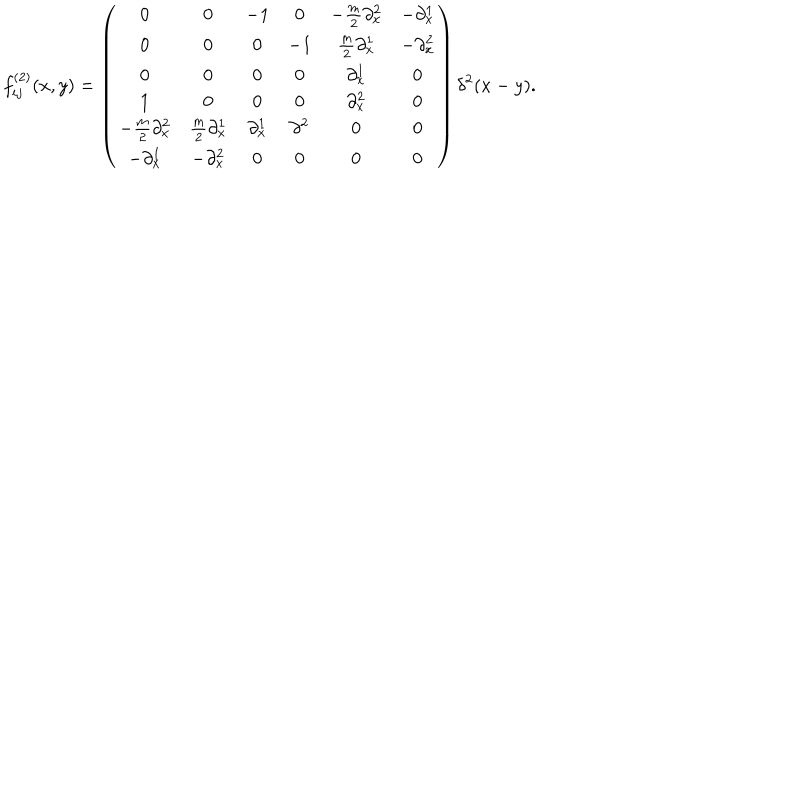 f_{ij}^{(2)}(x,y) = \left( \begin{array}{cccccc} 0 & 0 & -1 & 0 & -\frac{m}{2}\partial_x^2 & -\partial_x^1 \\ 0 & 0 & 0 & -1 & \frac{m}{2}\partial_x^1 & -\partial_x^2 \\ 0 & 0 & 0 & 0 & \partial_x^1 & 0 \\ 1 & 0 & 0 & 0 & \partial_x^2 & 0 \\ -\frac{m}{2}\partial_x^2 & \frac{m}{2}\partial_x^1 & \partial_x^1 & \partial^2 & 0 & 0 \\ -\partial_x^1 & -\partial_x^2 & 0 & 0 & 0 & 0 \end{array} \right) \delta^2(x-y).